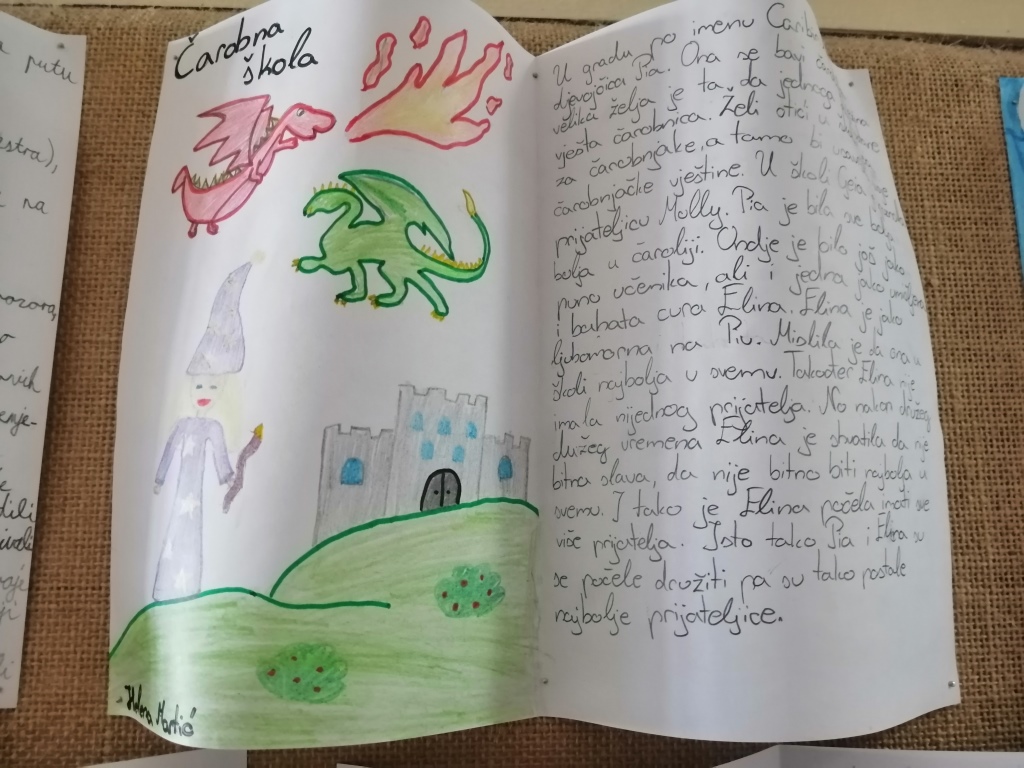 Čarobna
škola
Helena Martić
U gradu po imenu
djevojčica Pia. Ona se bavi
velika želja je ta, da jednog
vješta čarobnica. Želi otići u
za čarobnjake, a tamo bi
čarobnjačke vještine. U školi
prijateljicu Molly. Pia je bila sve bolja
bolja u čaroliji. Ondje je bilo još jako
puno učenika, ali i jedna jako umišljena
i bahata cura Elina. Elina je jako
ljubomorna na Piu. Mislila je da ona u
školi najbolja u svemu. Također Elina nije
imala nijednog prijatelja. No nakon dužeg
dužeg vremena Elina je shvatila da nije
bitna slava, da nije bitno biti najbolja u
svemu. I tako je Elina počela imati sve
više prijatelja. Isto tako Pia i Elina su
se počele družiti pa su tako postale
najbolje prijateljice.
putu
na